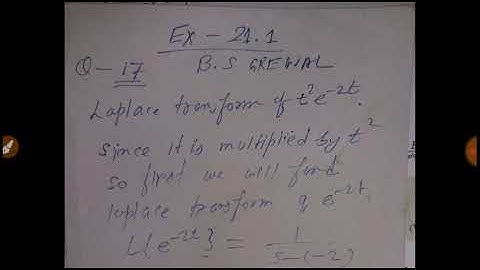 Ex - 21.1
Q - 17 B.S GREWAL
Laplace transform of t²e^-2t.
Since it is multiplied by t²
so first we will find
laplace transform of e^-2t.
L{e^-2t} = 1/(s-(-2))